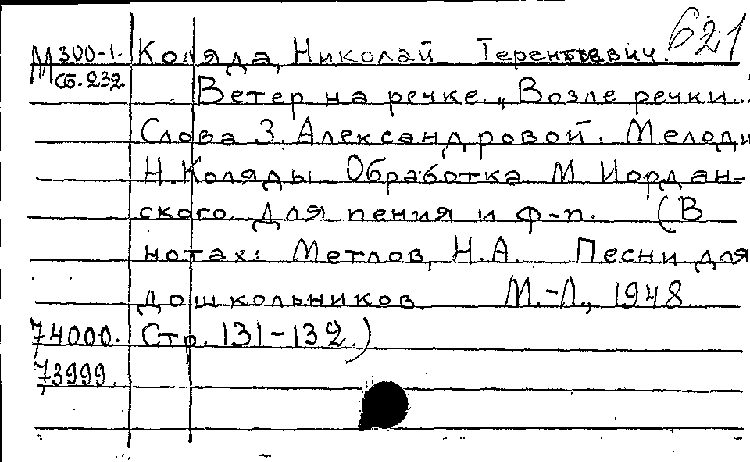 621
М300-1. Коляда, Николай Терентьевич.
Сб.232. Ветер на речке. „Возле речки..."
Слова З. Александровой. Мелоди
Н. Коляды. Обработка М. Иордан-
ского. Для пения и ф-п. (В
нотах: Метлов, Н.А. Песни для
дошкольников М.-Л., 1948
74000. Стр. 131-132.)
73999.